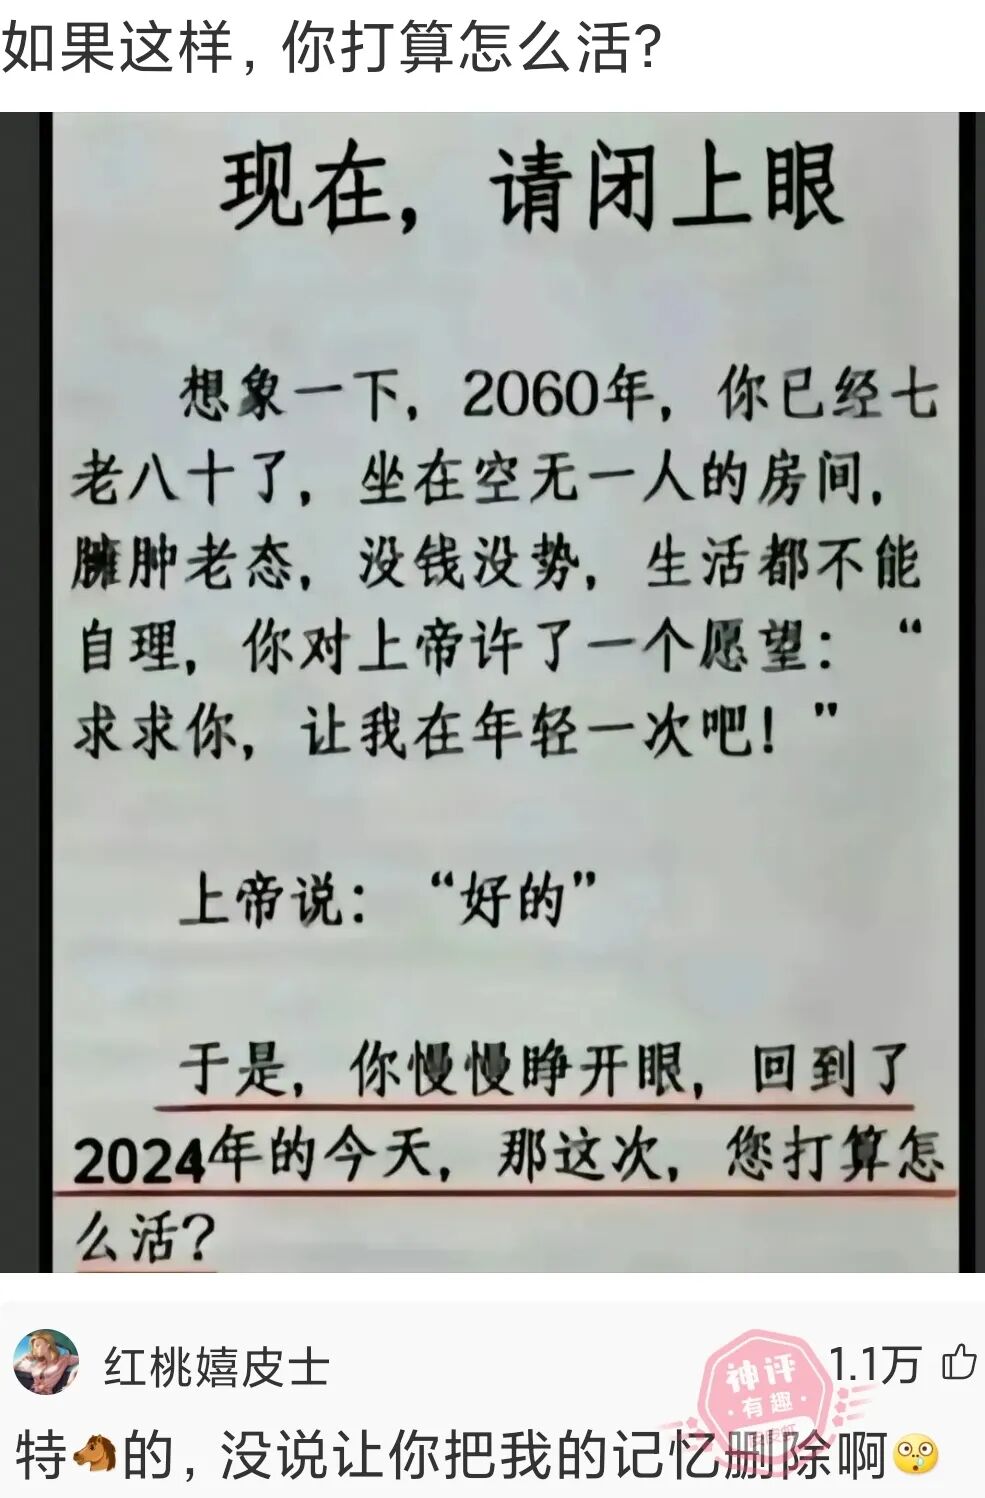 如果这样，你打算怎么活？
现在，请闭上眼
想象一下，2060年，你已经七
老八十了，坐在空无一人的房间，
臃肿老态，没钱没势，生活都不能
自理，你对上帝许了一个愿望：“
求求你，让我在年轻一次吧！”
上帝说：“好的”
于是，你慢慢睁开眼，回到了
2024年的今天，那这次，您打算怎
么活？
红桃嬉皮士
神评
·有趣·
1.1万
特🐴的，没说让你把我的记忆删除啊😲